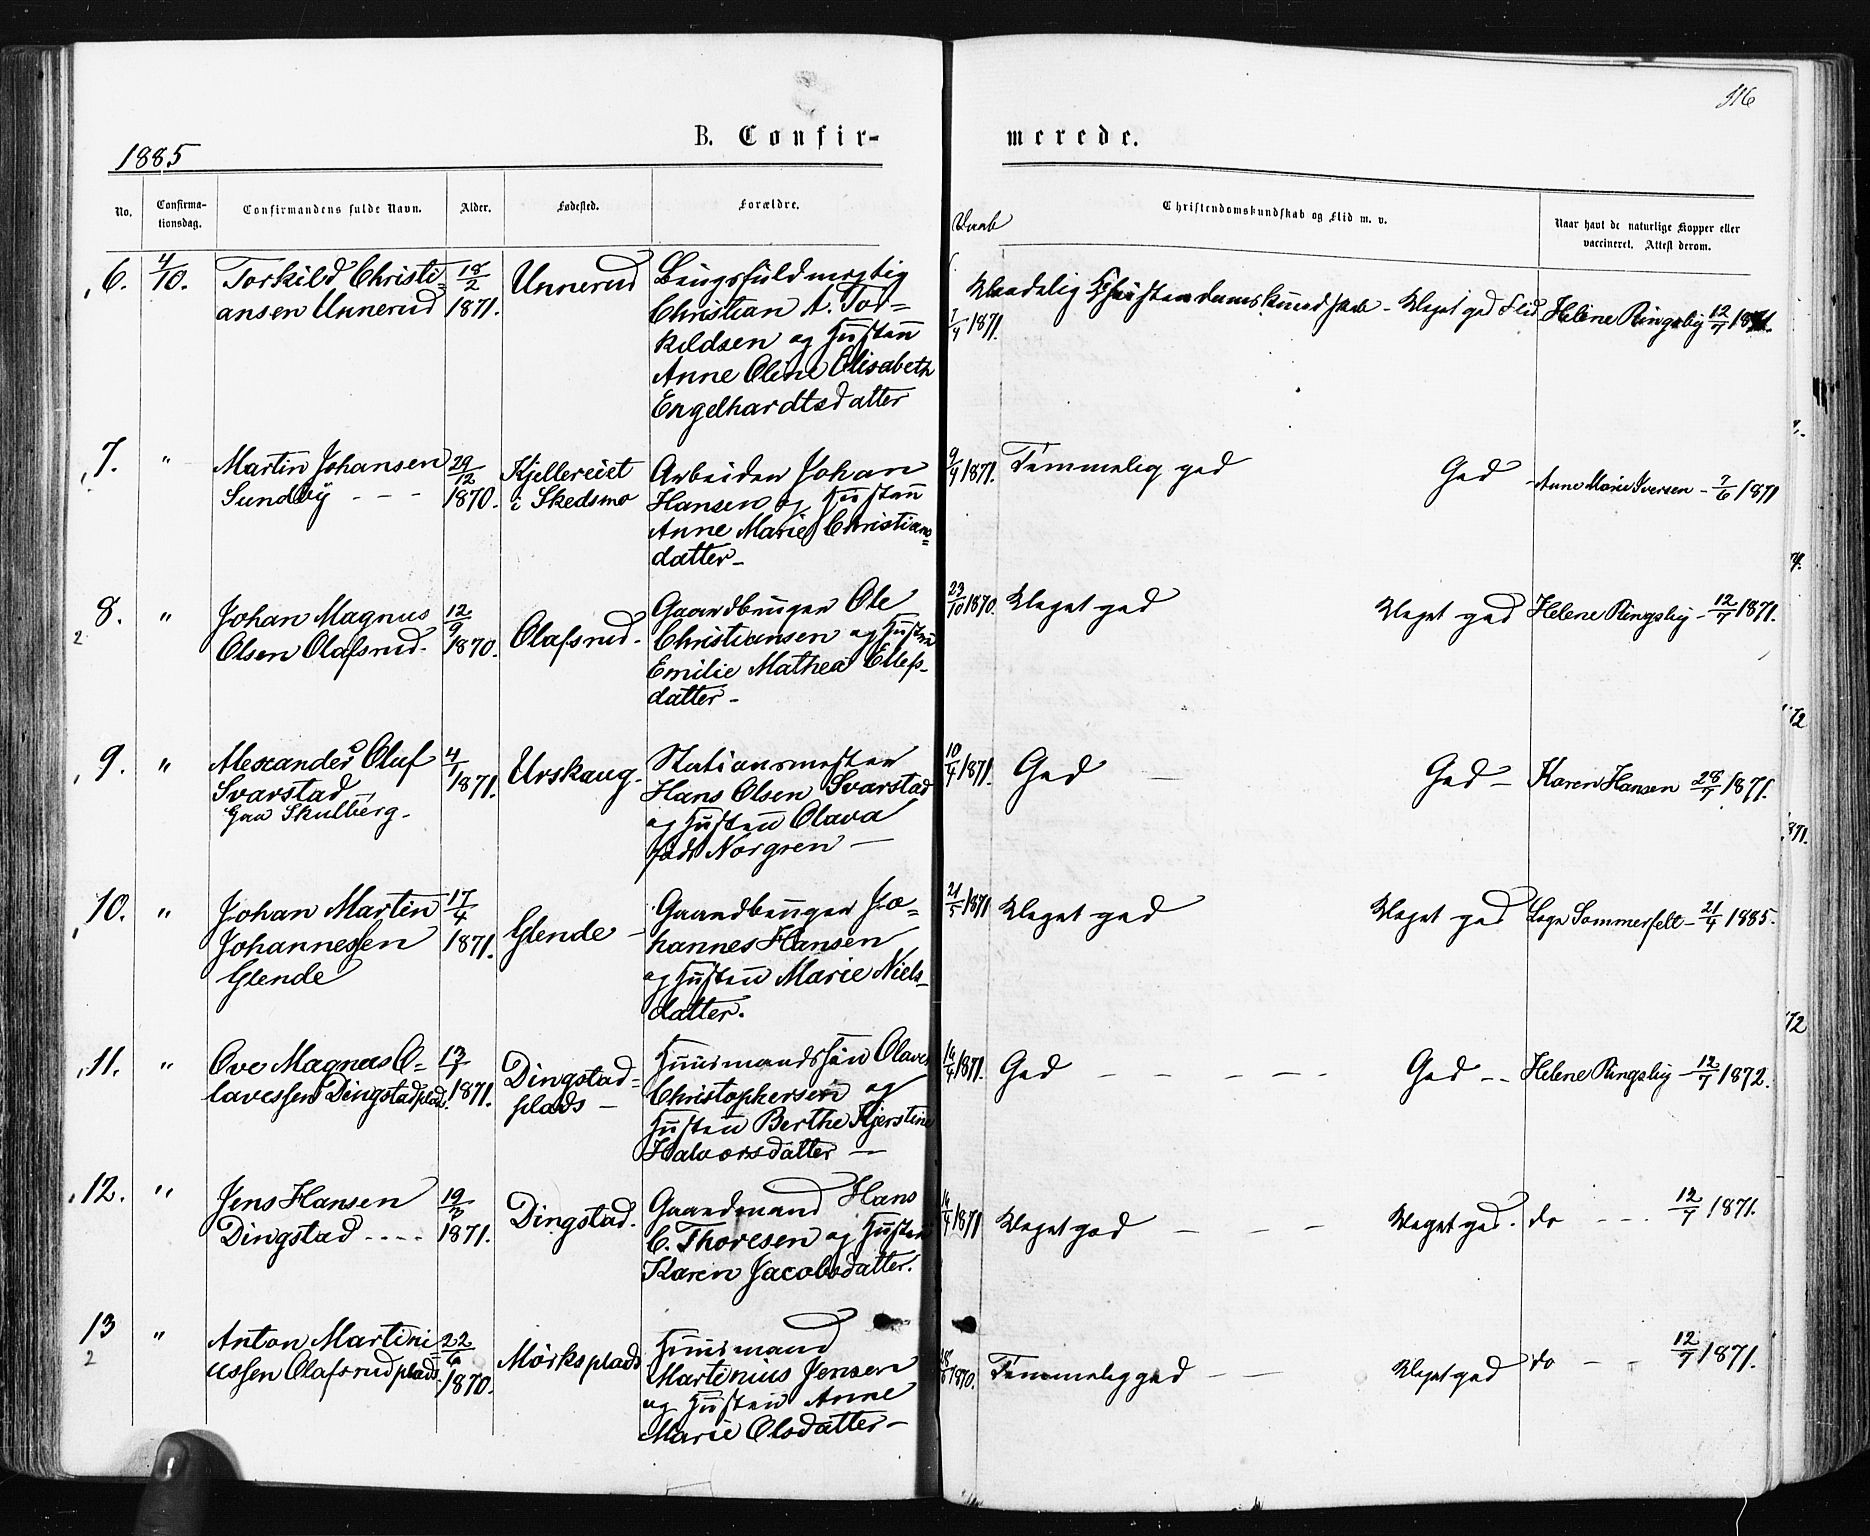 116
1885
B. Confir-
merede.
No.
Confirma-
tionsdag.
Confirmandens fulde Navn.
Alder.
Fødested.
Forældre.
Daab
Christendomskundskab og Flid m. v.
Naar havt de naturlige Kopper eller
vaccineret. Attest derom.
6. 4/10. Torkild Christi- 18/2 Unnerud
ansen Unnerud 1871.
Christian A. Tor-
kildsen og Hustru
Anne Oline Elisabeth
Engelhardtsdatter
7/4 1871. Christendomskundskab - Meget god Flid Helene Ringsby 12/7 1871.
7. " Martin Johansen 29/12 Kjellereiet
Sundby - - - 1870. i Skedsmo
Arbeider Johan
Hansen og Hustru
Anne Marie Christians-
datter -
9/4 1871. Temmelig god God - Anne Marie Iversen - 7/6 1871
2
8. " Johan Magnus 12/9 Olafsrud.
Olsen Olafsrud. 1870.
Gaardbruger Ole
Christiansen og Hustru
Emilie Mathea Ellefs-
datter -
23/10 1870. Meget god Meget god Helene Ringsby - 12/7 1871.
9. " Alexander Oluf 4/1 Urskaug.
Svarstad 1871.
Gaa Skulberg.
Stationsmester
Hans Olsen Svarstad
og Hustru Olava
født Norgren -
10/4 1871. God - God - Karen Hansen 28/7 1871.
10. " Johan Martin 17/4 Glende -
Johannessen 1871.
Glende
Gaardbruger Jo-
hannes Hansen
og Hustru Marie Niels-
datter.
21/5 1871 Meget god Meget god Læge Sommerfelt - 21/4 1885.
11. " Ove Magnus O- 13/1 Dingstad-
lavessen Dingstadplads. 1871. plads -
Huusmandssøn Olaves
Christophersen og
Hustru Berthe Kjerstine
Halvorsdatter -
14/4 1871. God - - - - - God - - Helene Ringsby - 12/7 1872.
12. " Jens Hansen 19/3 Dingstad.
Dingstad - - - - 1871.
Gaardmand Hans
C. Thoresen og Hustru
Karen Jacobsdatter.
14/4 1871 Meget god - - - Meget god. do - - - 12/7 1871.
13 " Anton Martini- 22/6 Mørksplads
2
ussen Olafsrudplads 1870.
Huusmand
Martinius Jensen
og Hustru Anne
Marie Olsdatter -
1870. Temmelig god - - Meget god do - - 12/7 1871.